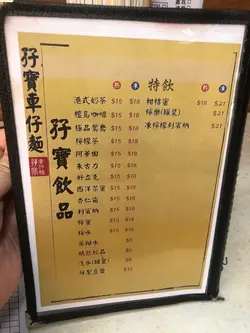 孖寶車仔麵
孖寶飲品
熱 凍
港式奶茶 $15 $18
檀島咖啡 $15 $18
極品鴛鴦 $15 $18
檸檬茶 $15 $18
阿華田 $15 $18
朱古力 $15 $18
好立克 $15 $18
西洋菜蜜 $15 $18
杏仁霜 $15 $18
利賓納 $15 $18
檸蜜 $15 $18
檸水 $15 $18
菜柏水 $8
紙包飲品 $6
汽水(罐裝) $8
特飲
熱 凍
柑桔蜜 $18 $21
檸樂(罐裝) $21
凍檸檬利賓納 $21